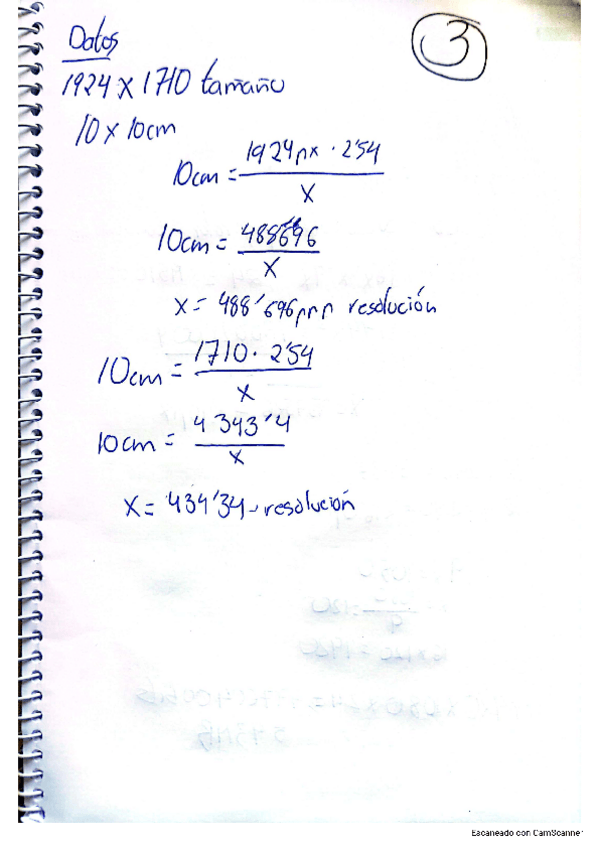 Datos
3
1924 x 1710 tamaño
10 x 10cm
10cm = 1924px · 2'54 / x
10cm = 488696 / x
x = 488'696ppp resolución
10cm = 1710 · 2'54 / x
10cm = 4343'4 / x
x = 434'34 - resolución
Escaneado con CamScanner